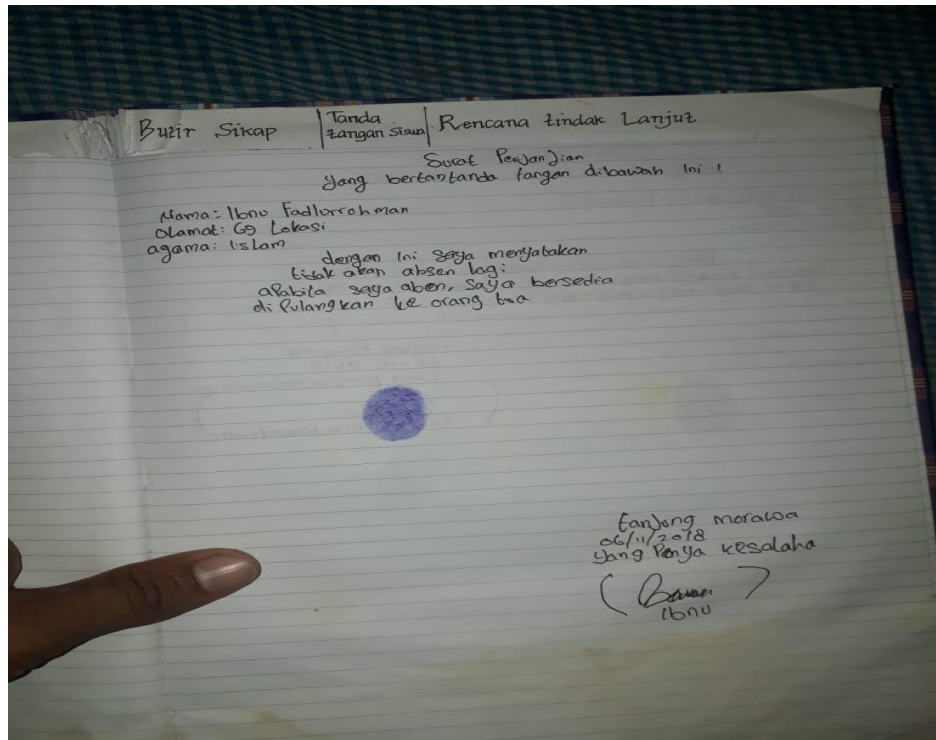 Butir Sikap
Tanda tangan siswa
Rencana tindak Lanjut
Surat Perjanjian
yang bertantanda tangan dibawah ini :
Nama: Ibnu Fadlurrohman
alamat: Gg Lokasi
agama: Islam
dengan ini saya menyatakan
tidak akan absen lagi
apabila saya aben, saya bersedia
di pulangkan ke orang tua
tanjung morawa
06/11/2018
yang Punya kesalaha
Ibnu